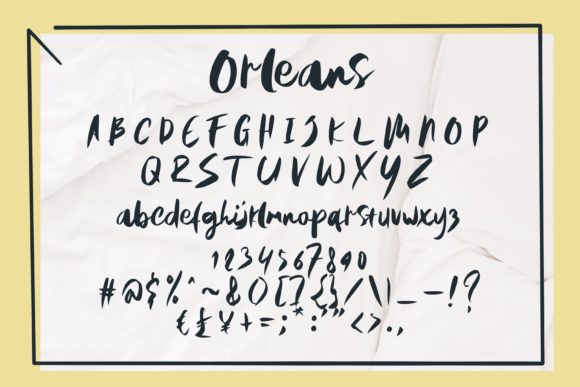 Orleans
ABCDEFGHIJKLMNOP
QRSTUVWXYZ
abcdefghijklmnopqrstuvwxyz
1234567890
#@$%^~&()[]{}/\|_-!?
€£¥+=;*:'"<>.,